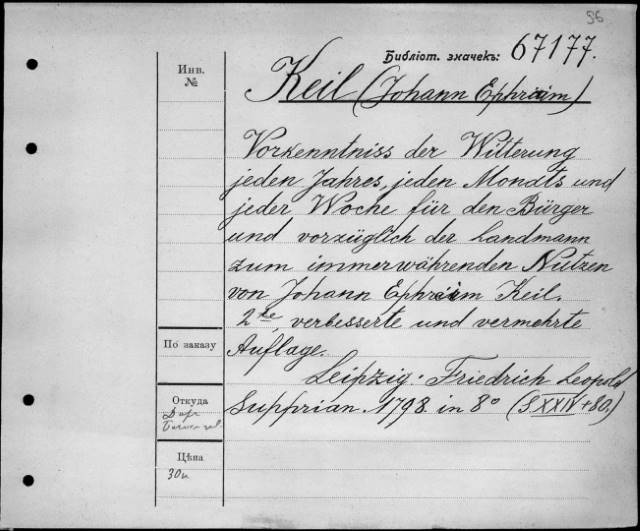 56
Библіот. значекъ: 67177.
Инв.
№
Keil (Johann Ephraim)
Vorkenntniss der Witterung
jeden Jahres, jeden Monats und
jeder Woche für den Bürger
und vorzüglich der Landmann
zum immerwährenden Nutzen
von Johann Ephraim Keil.
2te, verbesserte und vermehrte
По заказу
Auflage.
Leipzig. Friedrich Leopold
Откуда
Supprian. 1798. in 8° (S. XXIV + 80.)
Даръ
Цѣна
30к